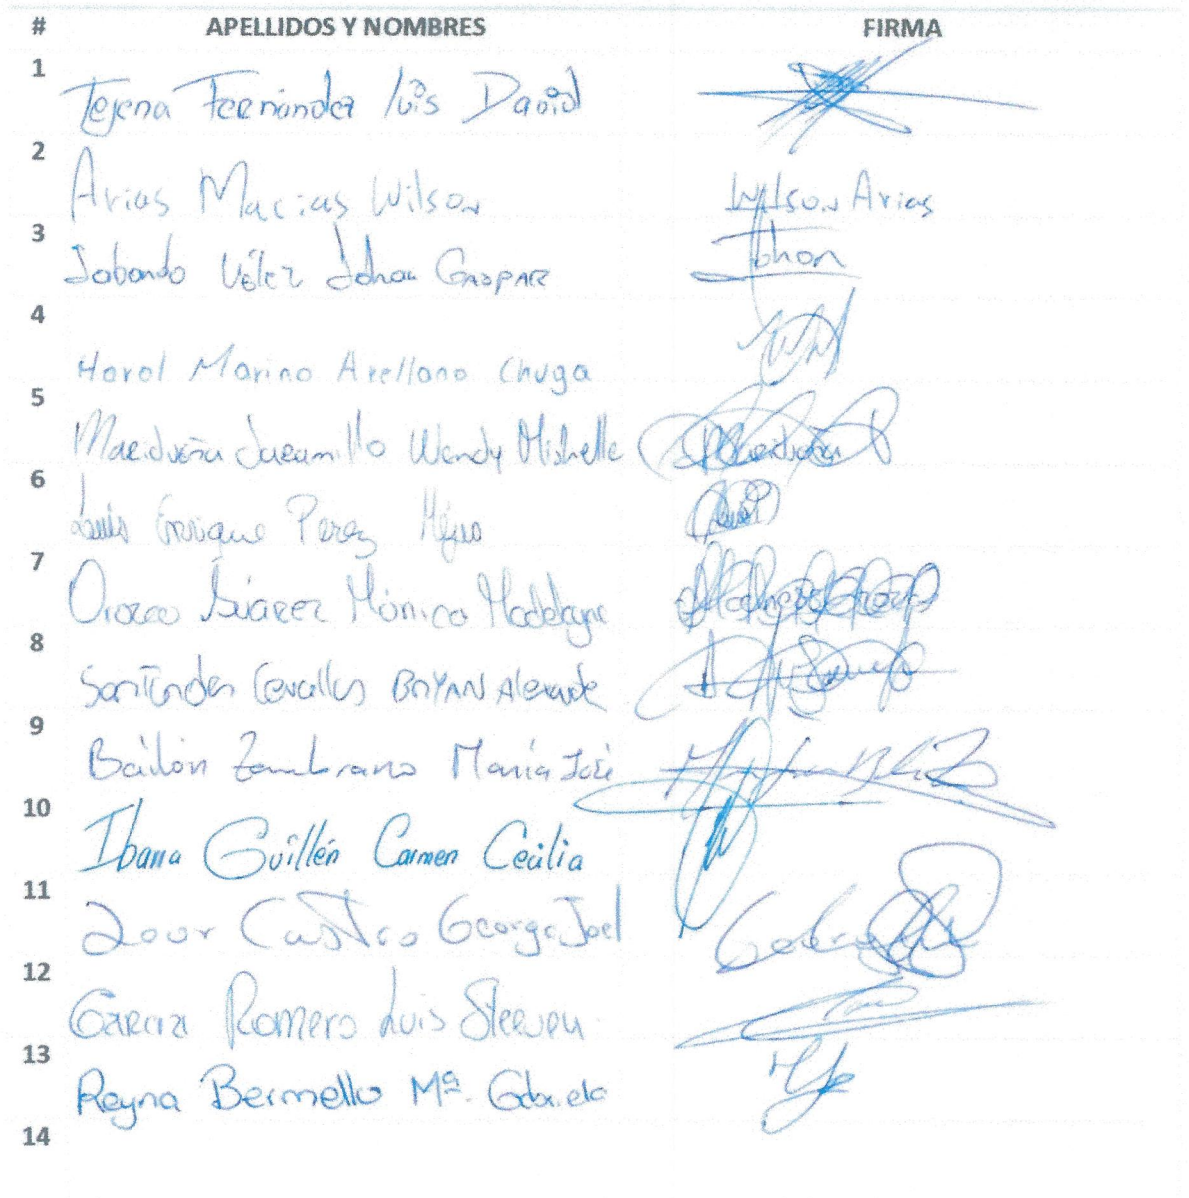 # APELLIDOS Y NOMBRES FIRMA
1 Tejena Fernández Luis David
2 Arias Macias Wilson Wilson Arias
3 Jabando Vélez Johan Gaspar Johan
4 Harol Marino Arellano Chuga
5 Mariduéña Jaramillo Wendy Mishelle
6 Luis Enrique Perez
7 Orozco Suárez Mónica Madelayne
8 Santander Cevallos BRYAN Alexande
9 Bailón Zambrano María José
10 Ibarra Guillén Carmen Cecilia
11 Castro George Joel
12 García Romero Luis Steeven
13 Reyna Bermello Mª. Gabriela
14